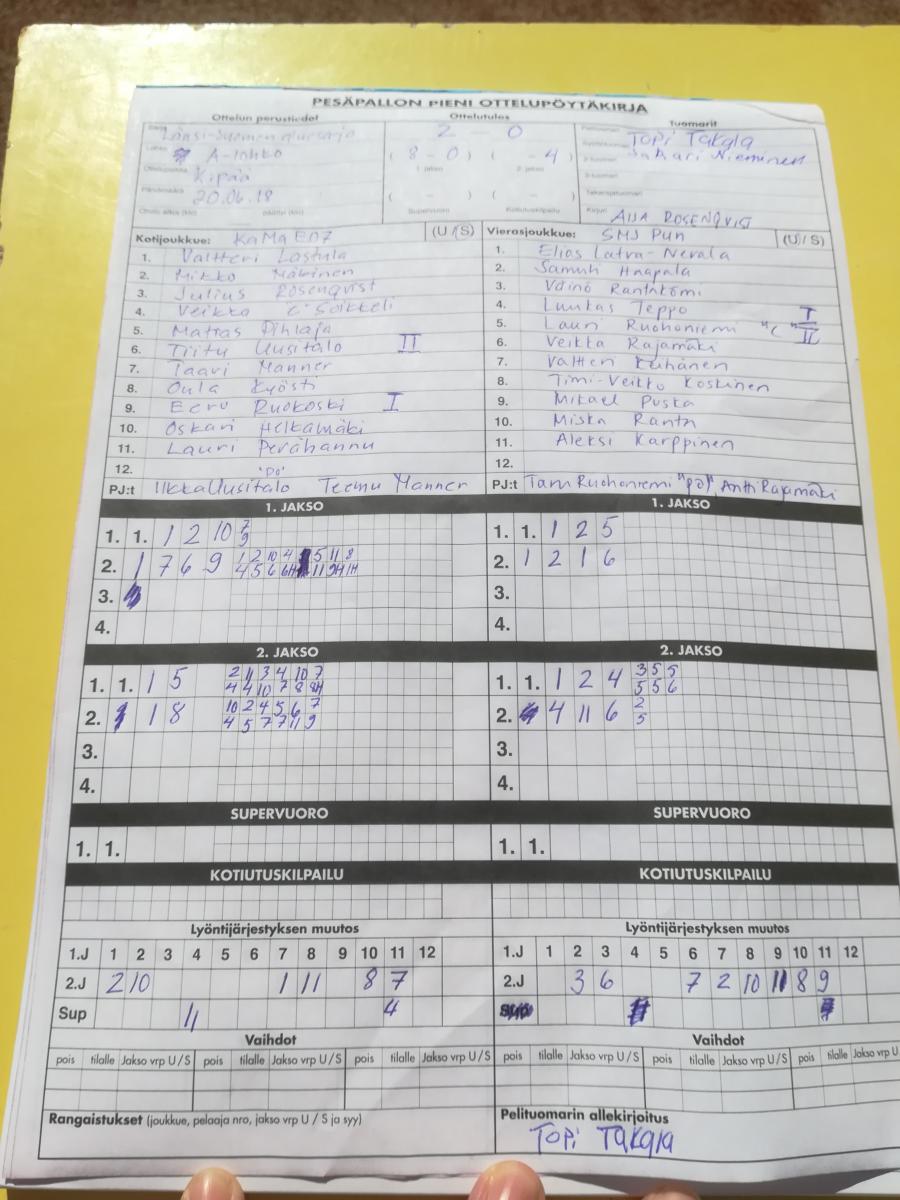 PESÄPALLON PIENI OTTELUPÖYTÄKIRJA
Ottelun perustiedot Ottelutulos Tuomarit
2 - 0 Topi Takala
A-lohko ( 8 - 0 ) ( - 4 ) Sakari Nieminen
1. jakso 2. jakso
Kipää
20.06.18 ( - ) ( - )
Supervuoro Kotiutuskilpailu AIJA ROSENQVIST
Kotijoukkue: KaMa ED7 (U/S) Vierasjoukkue: SMJ Pun (U/S)
1. Valtteri Lastula 1. Elias Latva-Nevala
2. Mikko Mäkinen 2. Samuli Haapala
3. Julius Rosenqvist 3. Väinö Rantatomi
4. Veikka Soikkeli 4. Luukas Teppo I
5. Matias Pihlaja 5. Lauri Ruohoniemi "C" II
6. Tiitu Uusitalo II 6. Veikka Rajamäki
7. Taavi Manner 7. Valtteri Kuhanen
8. Oula Kyösti 8. Timi-Veikko Koskinen
9. Eeru Ruokoski I 9. Mikael Puska
10. Oskari Helkamäki 10. Miska Ranta
11. Lauri Perähannu 11. Aleksi Karppinen
12. "PO" 12.
PJ:t Ilkka Uusitalo Teemu Manner PJ:t Tami Ruohoniemi "po", Antti Rajamäki
1. JAKSO 1. JAKSO
1. 1. 1 2 10 7 9 1. 1. 1 2 5
2. 1 7 6 9 1 2 10 4 5 11 8 2. 1 2 1 6
4 5 6 6H 11 9H 1H
3. 3.
4. 4.
2. JAKSO 2. JAKSO
1. 1. 1 5 2 11 3 4 10 7 1. 1. 1 2 4 3 5 5
4 4 10 7 8 8H 5 5 6
2. 1 8 10 2 4 5 6 7 2. 4 11 6 2
4 5 7 7 11 9 5
3. 3.
4. 4.
SUPERVUORO SUPERVUORO
1. 1. 1. 1.
KOTIUTUSKILPAILU KOTIUTUSKILPAILU
Lyöntijärjestyksen muutos Lyöntijärjestyksen muutos
1.J 1 2 3 4 5 6 7 8 9 10 11 12 1.J 1 2 3 4 5 6 7 8 9 10 11 12
2.J 2 10 1 11 8 7 2.J 3 6 7 2 10 11 8 9
Sup 11 4
Vaihdot Vaihdot
pois tilalle Jakso vrp U / S pois tilalle Jakso vrp U / S pois tilalle Jakso vrp U / S pois tilalle Jakso vrp U / S pois tilalle Jakso vrp U / S pois tilalle Jakso vrp U
Rangaistukset (joukkue, pelaaja nro, jakso vrp U / S ja syy) Pelituomarin allekirjoitus
Topi Takala